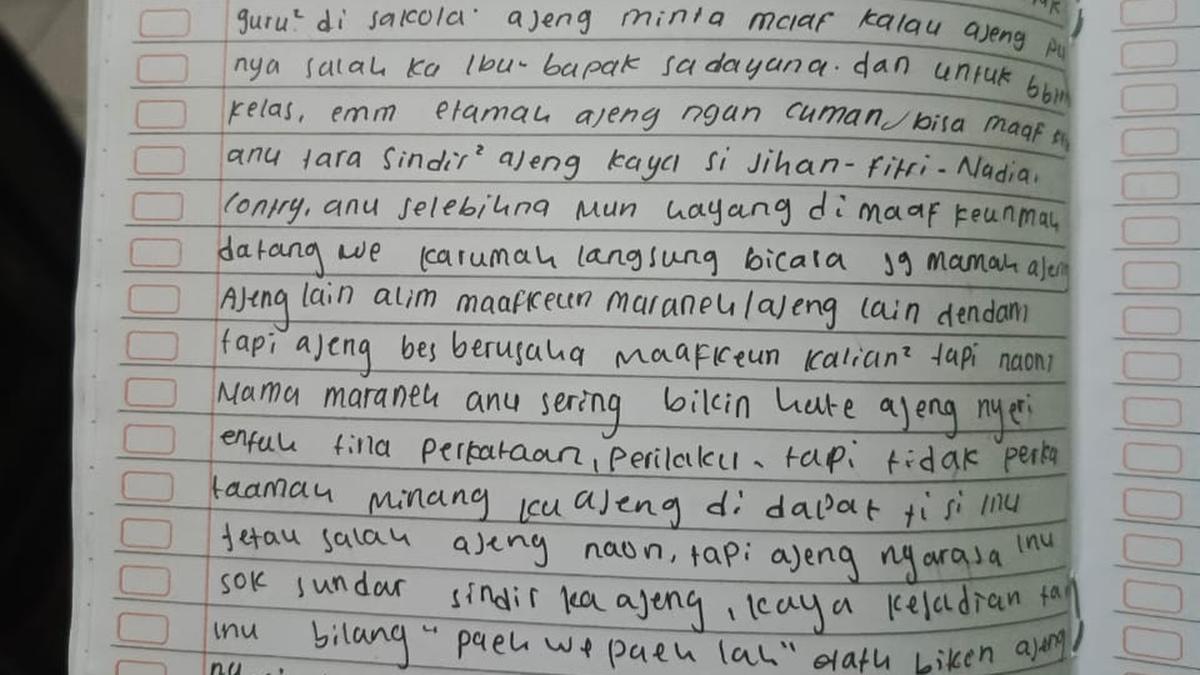 guru² di sakola. ajeng minta maaf kalau ajeng pu
nya salah ka Ibu-bapak sadayana. dan untuk
kelas, emm etamah ajeng ngan cuman bisa maaf
anu tara sindir² ajeng kaya si Jihan-Fitri-Nadia.
Contry, anu selebihna mun hayang di maaf keunmah
datang we karumah langsung bicara jg mamah ajeng
Ajeng lain alim maafkeun maraneh/ajeng lain dendam
tapi ajeng bes berusaha maafkeun kalian² tapi naon?
Nama maraneh anu sering bikin hate ajeng nyeri
entah tina perkataan, perilaku. tapi tidak perka
taamah minang ku ajeng di dapat ti si inu
tetau salah ajeng naon, tapi ajeng ngarasa inu
sok sundar sindir ka ajeng, kaya kejadian
inu bilang "paeh we paeh lah" etath biken ajeng